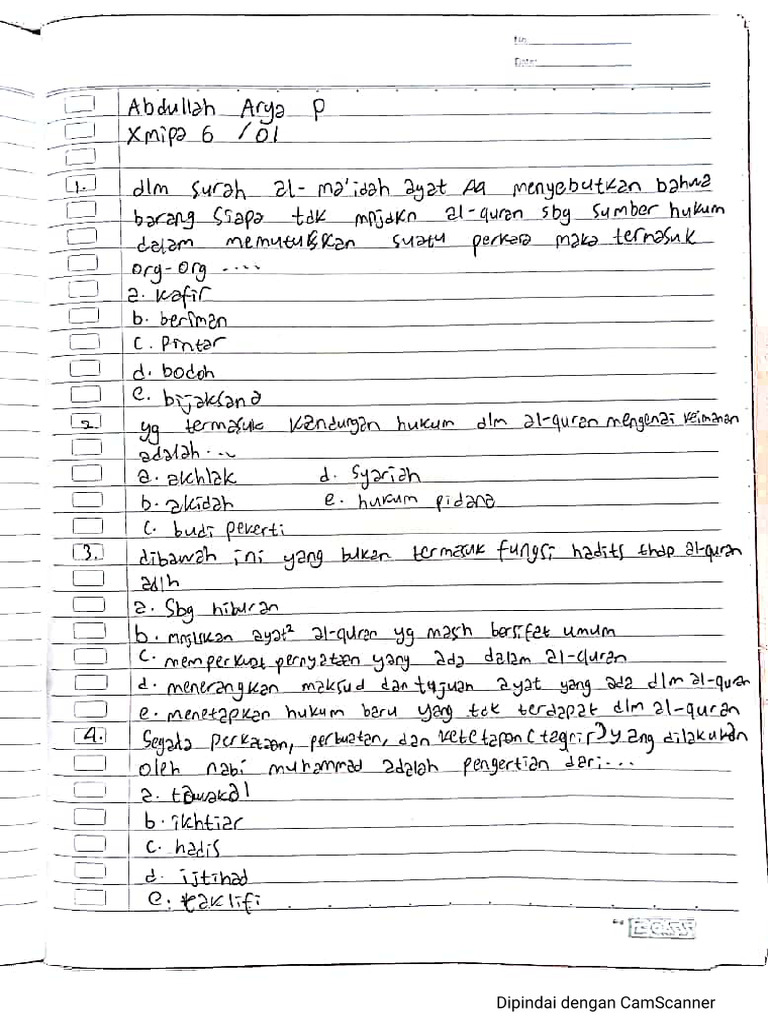 No
Date:
Abdullah Arya P
X mipa 6 / 01
1. dlm surah al-ma'idah ayat 44 menyebutkan bahwa
barang siapa tdk mnjdkn al-quran sbg sumber hukum
dalam memutuskan suatu perkara maka termasuk
org-org ....
a. kafir
b. beriman
c. Pintar
d. bodoh
e. bijaksana
2. yg termasuk kandungan hukum dlm al-quran mengenai keimanan
adalah ...
a. akhlak d. Syariah
b. akidah e. hukum pidana
c. budi pekerti
3. dibawah ini yang bukan termasuk fungsi hadits thdp al-quran
adlh
a. Sbg hiburan
b. mnjlskan ayat² al-quran yg masih bersifat umum
c. memperkuat pernyataan yang ada dalam al-quran
d. menerangkan maksud dan tujuan ayat yang ada dlm al-quran
e. menetapkan hukum baru yang tdk terdapat dlm al-quran
4. Segala perkataan, perbuatan, dan ketetapan (taqrir) yang dilakukan
oleh nabi muhammad adalah pengertian dari ...
a. tawakal
b. ikhtiar
c. hadis
d. ijtihad
e. taklifi
BOSS
Dipindai dengan CamScanner